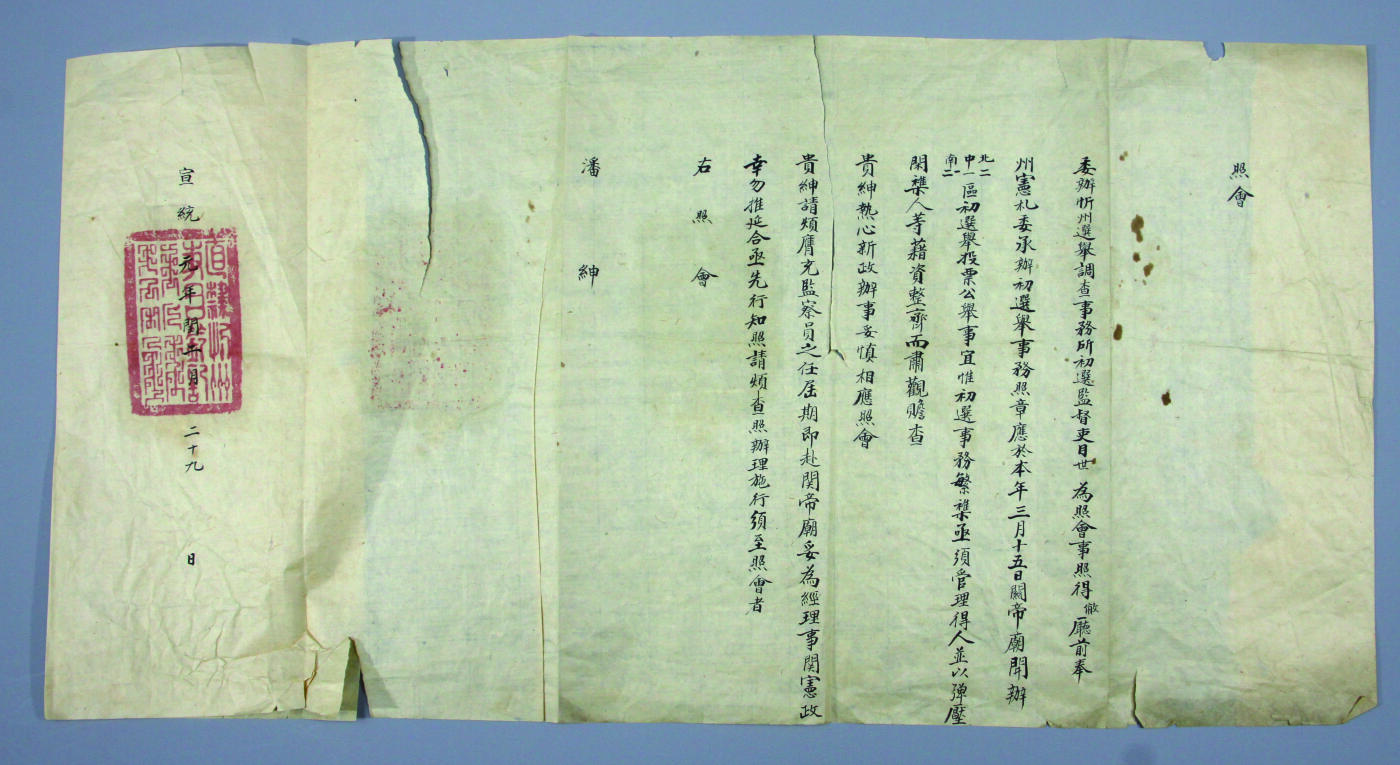 照會
委辦忻州選舉調查事務所初選監督吏目世 為照會事照得敝廳前奉
州憲札委承辦初選舉事務照章應於本年三月十五日關帝廟開辦
北二中一南二區初選舉投票公舉事宜惟初選事務繁襍亟須管理得人並以彈壓
閑襍人等藉資整齊而肅觀瞻查
貴紳熱心新政辦事妥慎相應照會
貴紳請煩膺充監察員之任屆期即赴関帝廟妥為經理事関憲政
幸勿推延合亟先行知照請煩查照辦理施行須至照會者
右照會
潘紳
宣統元年閏二月二十九日